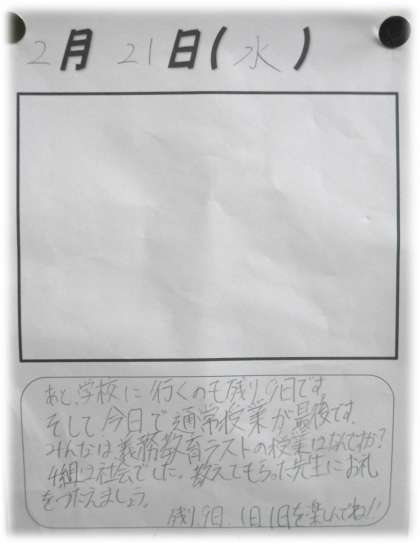 2月 21日(水)
あと、学校に行くのも残り、9日です
そして、今日で通常授業が最後です。
みんなは義務教育ラストの授業はなんですか?
4組は社会でした。教えてもらった先生にお礼
をつたえましょう。
残り、9日、1日1日を楽しんでね!!